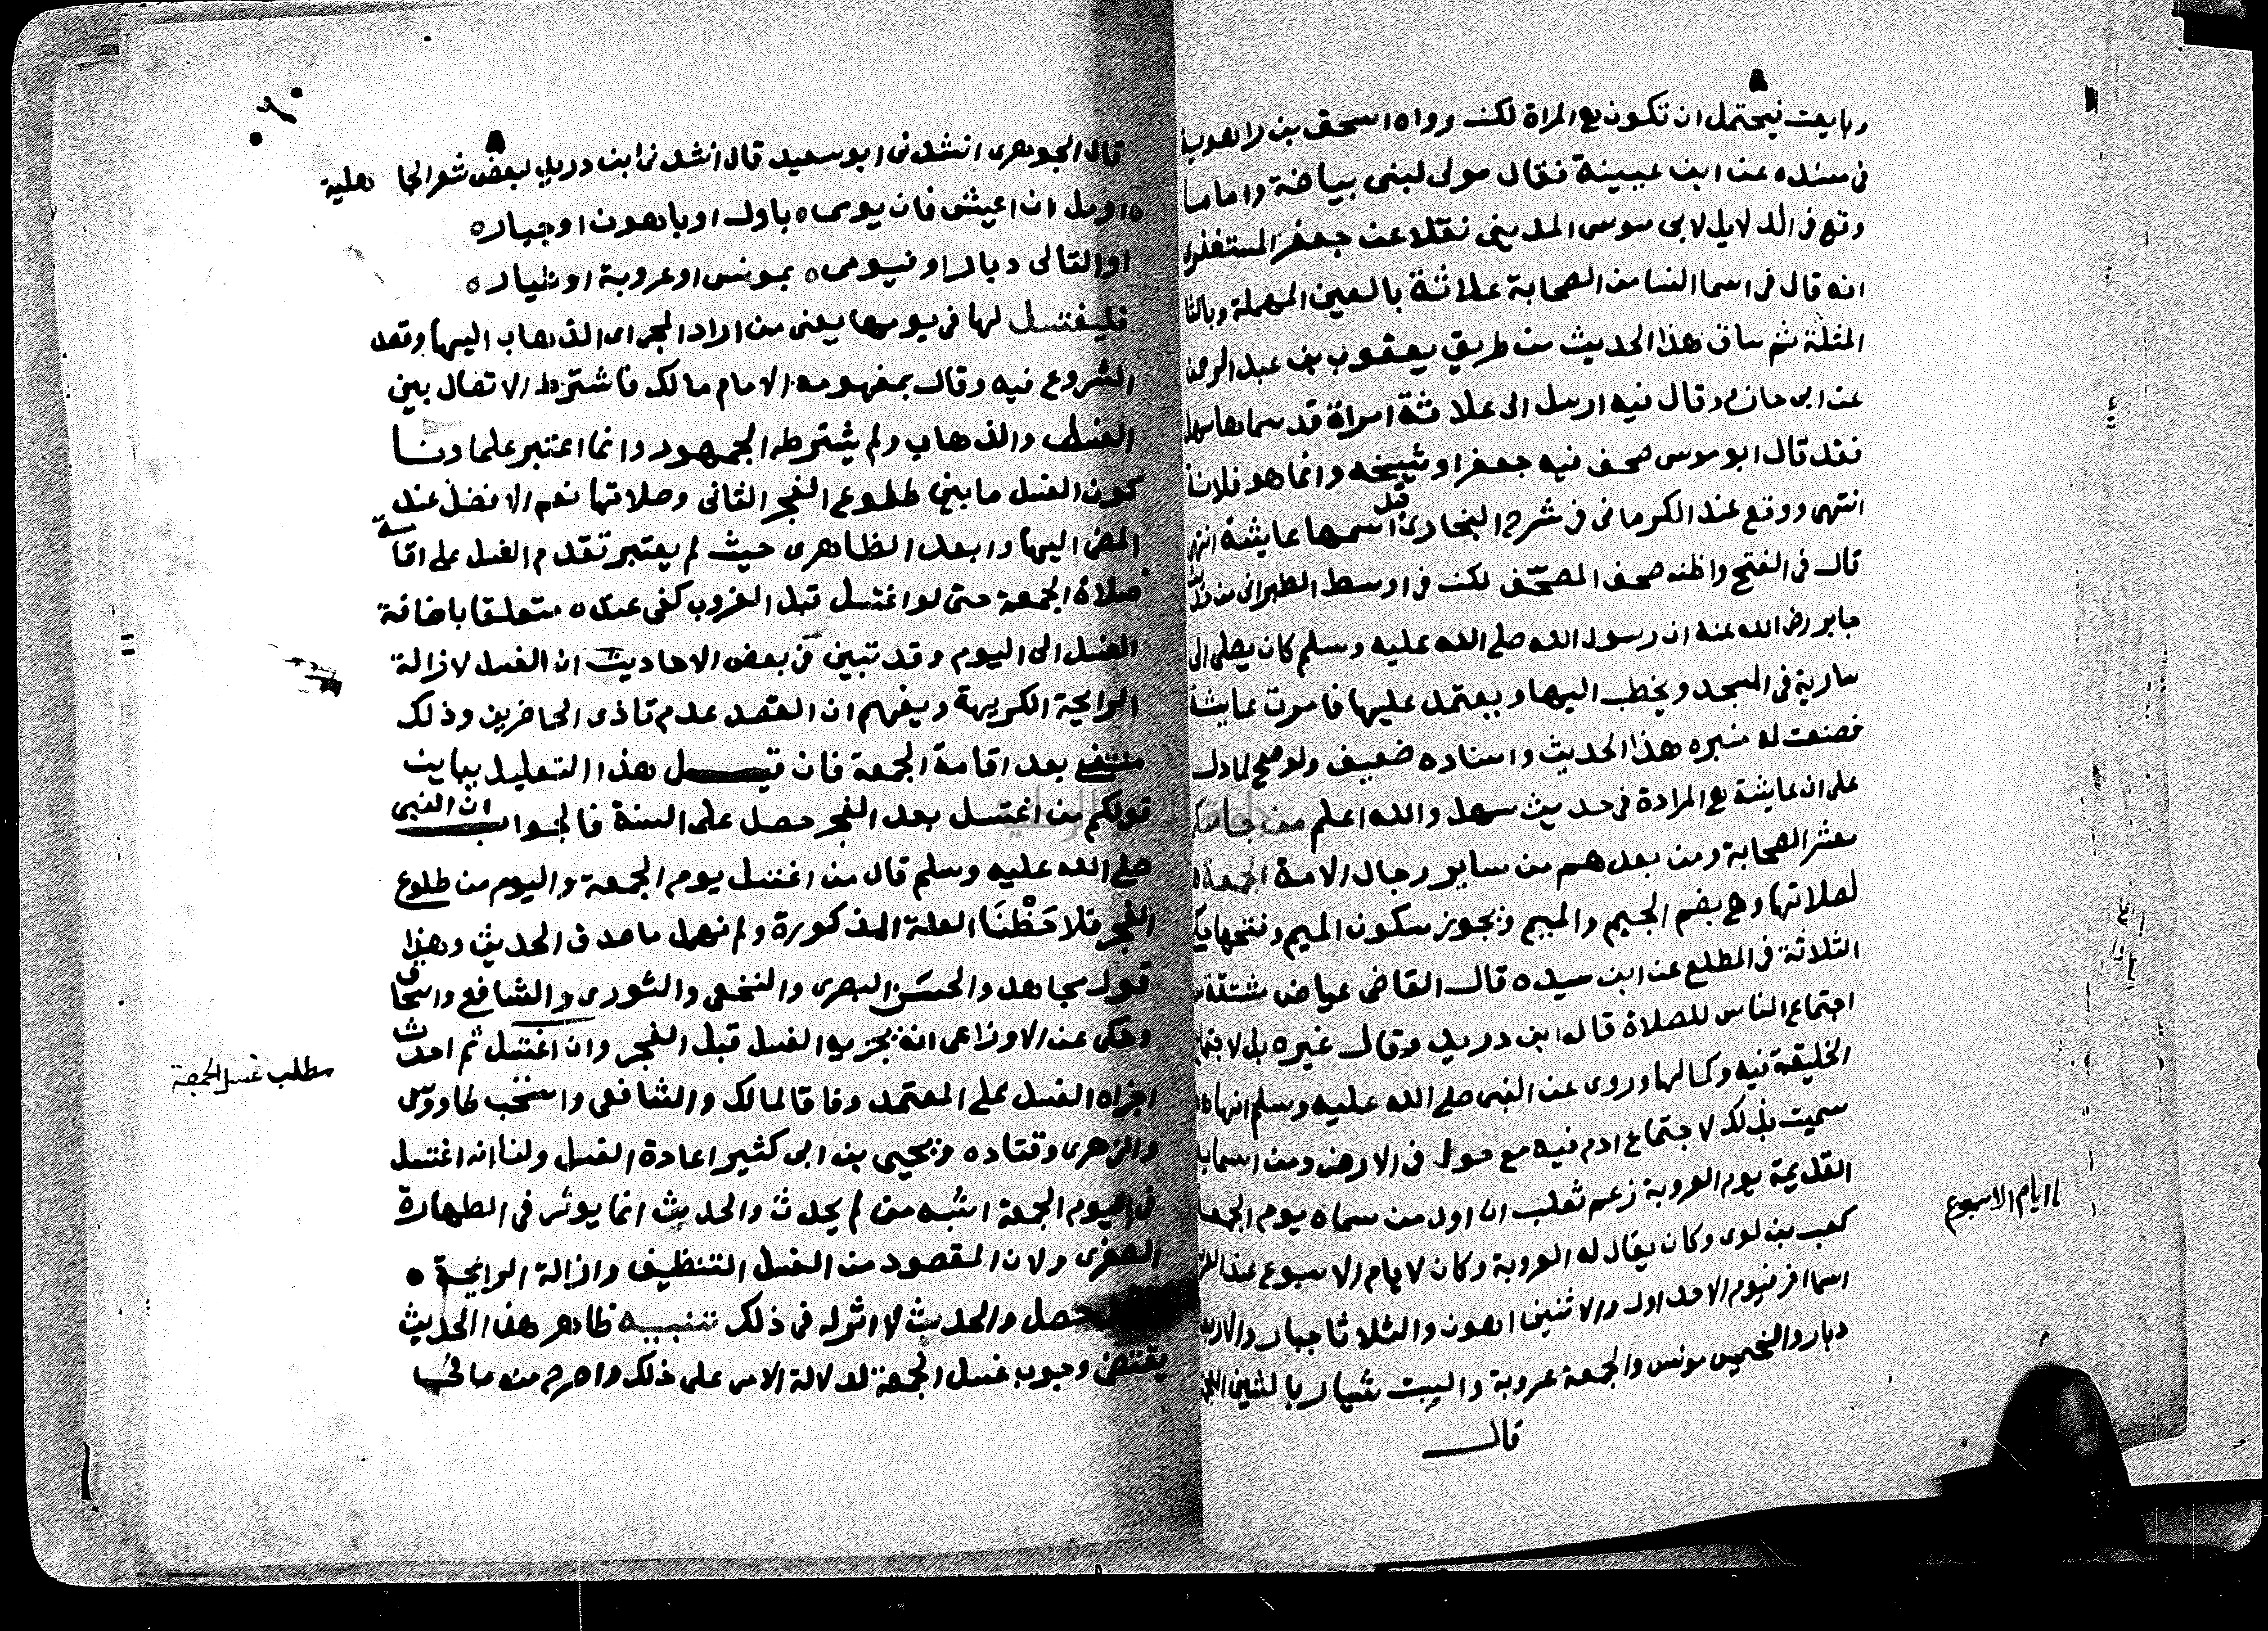 وبايعت فيحتمل ان تكون هي المراة لكن رواه اسحق بن راهويه
في مسنده عن ابن عيينة فقال مولى لبني بياضة واما ما
وقع في الدلايل لابي موسى المديني نقلا عن جعفر المستغفري
انه قال في اسما النسا من الصحابة علاثة بالعين المهملة وبالثا
المثلثة ثم ساق هذا الحديث من طريق يعقوب بن عبد الرحمن
عن ابي حازم وقال فيه ارسل الى علاثة امراة قد سماها سهل
فقد قال ابو موسى صحف فيه جعفر او شيخه وانما هو فلانة
انتهى ووقع عند الكرماني في شرح البخاري قيل اسمها عايشة انتهى
قال في الفتح واظنه صحف المصحف لكن في اوسط الطبراني من حديث
جابر رضي الله عنه ان رسول الله صلى الله عليه وسلم كان يصلي الى
سارية في المسجد ويخطب اليها ويعتمد عليها فامرت عايشة
فصنعت له منبره هذا الحديث واسناده ضعيف ولو صح لما دل
على ان عايشة هي المرادة في حديث سهل والله اعلم من جا منكم
معشر الصحابة ومن بعدهم من ساير رجال الامة الجمعة
لصلاتها وهي بضم الجيم والميم ويجوز سكون الميم وفتحها حكى
الثلاثة في المطلع عن ابن سيده قال القاضي عياض مشتقة من
اجتماع الناس للصلاة قاله ابن دريد وقال غيره بل لاجتماع
الخليقة فيه وكمالها وروى عن النبي صلى الله عليه وسلم انها
سميت بذلك لاجتماع ادم فيه مع حوا في الارض ومن اسمايه
القديمة يوم العروبة زعم ثعلب ان اول من سماه يوم الجمعة
كعب بن لوى وكان يقال له العروبة وكان لايام الاسبوع عند العرب
اسما اخر فيوم الاحد اول والاثنين اهون والثلاثا جبار والاربعا
دبار والخميس مونس والجمعة عروبة والسبت شيار بالشين
قال
ايام الاسبوع
قال الجوهرى انشدنى ابو سعيد قال انشدنى ابن دريد لبعض شعر الجاهلية
اومل ان اعيش فان يومى ٥ باول او باهون او جبار ٥
او التالى دبار او فيومى ٥ بمونس او عروبة او شيار ٥
فليغتسل لها في يومها يعنى من اراد المجى اى الذهاب اليها وقصد
الشروع فيه وقال بمفهومه الامام مالك فاشترط الاتصال بين
الغسل والذهاب ولم يشترطه الجمهور وانما اعتبر علماونا
كون الغسل ما بين طلوع الفجر الثانى وصلاتها نعم الافضل عند
المضى اليها وابعد الظاهرى حيث لم يعتبر تقدم الغسل على اقامة
صلاة الجمعة حتى لو اغتسل قبل الغروب كفى عنده متعلقا باضافة
الغسل الى اليوم وقد تبين من بعض الاحاديث ان الغسل لازالة
الرايحة الكريهة ويفهم ان القصد عدم تاذى الحاضرين وذلك
منتفى بعد اقامة الجمعة فان قيل هذا التعليل يباين
قولكم من اغتسل بعد الفجر حصل على السنة فالجواب ان النبى
صلى الله عليه وسلم قال من اغتسل يوم الجمعة واليوم من طلوع
الفجر فلاحظنا العلة المذكورة ولم نهمل ما صدق الحديث وهذا
قول مجاهد والحسن البصرى والنخعى والثورى والشافعى واسحاق
وحكى عن الاوزاعى انه يجزيه الغسل قبل الفجر وان اغتسل ثم احدث
اجزاه الغسل على المعتمد وفاقا لمالك والشافعى واستحب طاووس
والزهرى وقتاده ويحيى بن ابى كثير اعادة الغسل ولنا انه اغتسل
فى اليوم الجمعة اشبه من لم يحدث والحدث انما يوثر فى الطهارة
الصغرى ولان المقصود من الغسل التنظيف وازالة الرايحة ٥
حصل والحدث لا اثر له فى ذلك تنبيه ظاهر هذا الحديث
يقتضى وجوب غسل الجمعة لدلالة الامر على ذلك واصرح منه ما فى
مطلب غسل الجمعة